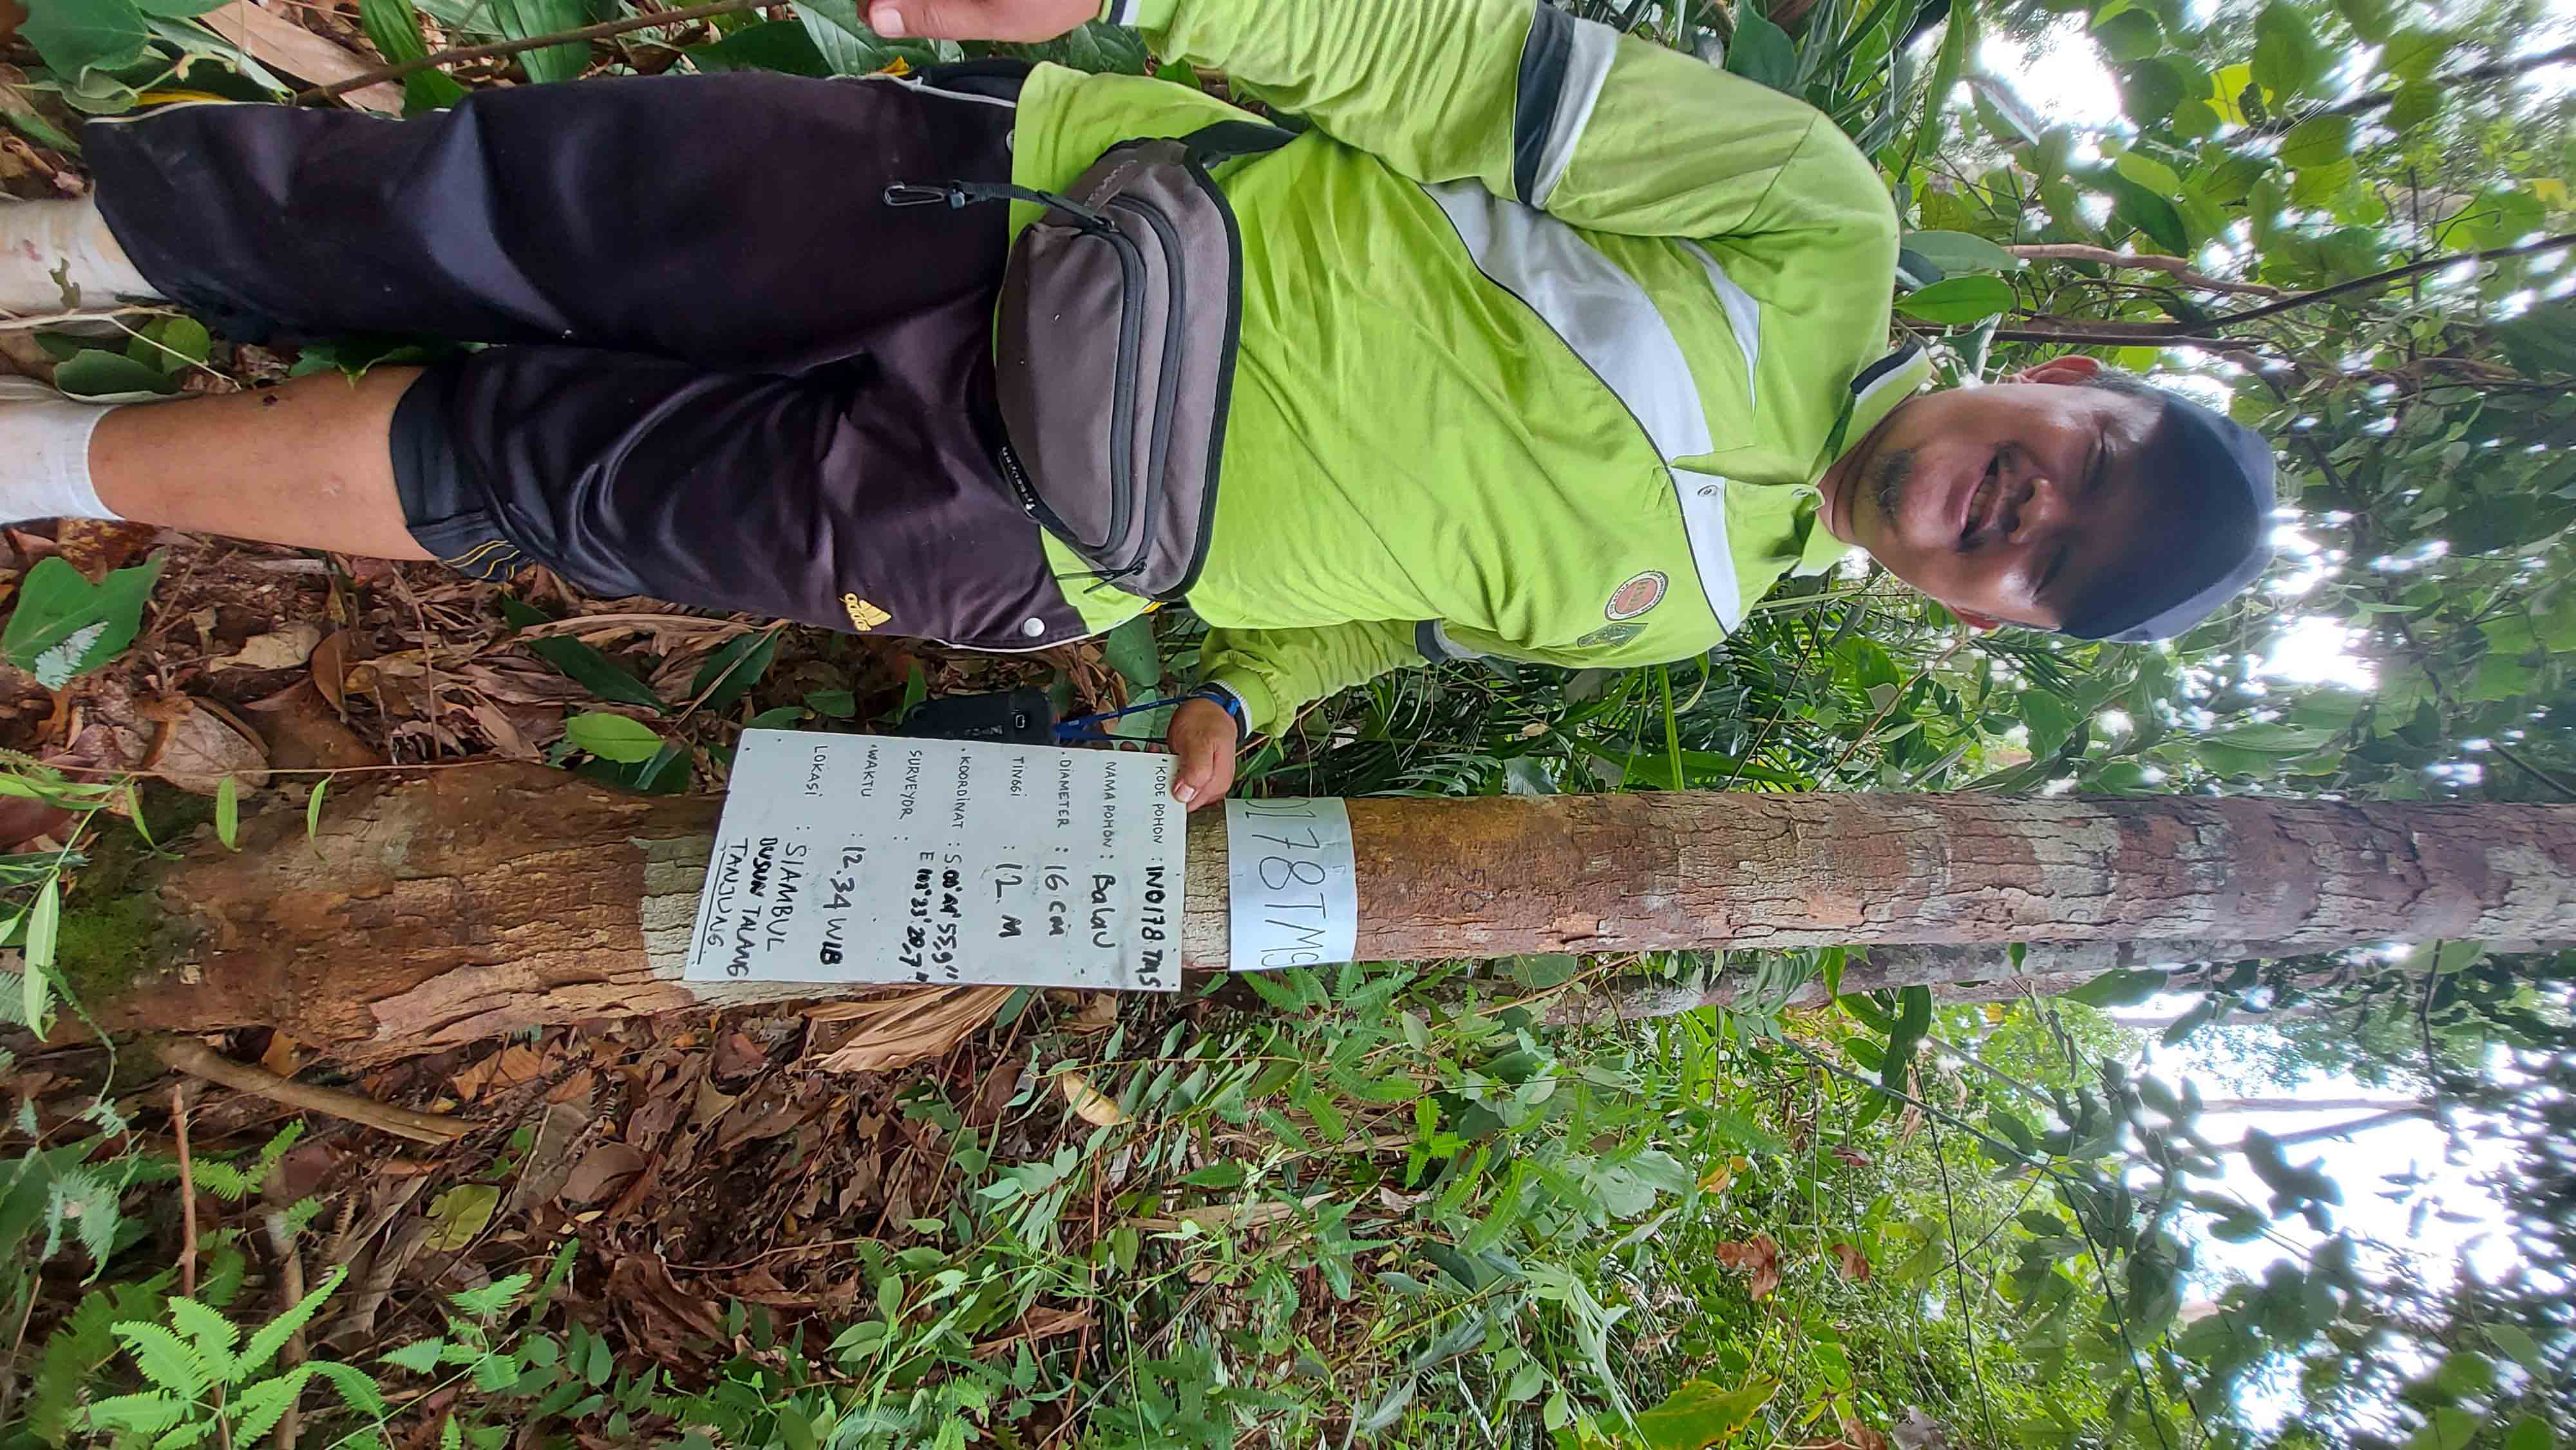 50
0178TMS
KODE POHON : IN0178 TMS
NAMA POHON : BaLaU
DIAMETER : 16 CM
TINGGI : 12 M
KOORDINAT : S.00°44' 55,9"
E 102°33' 20,7"
SURVEYOR :
WAKTU : 12.34 WIB
LOKASI : SIAMBUL
DUSUN TALANG
TANJUNG.
adidas